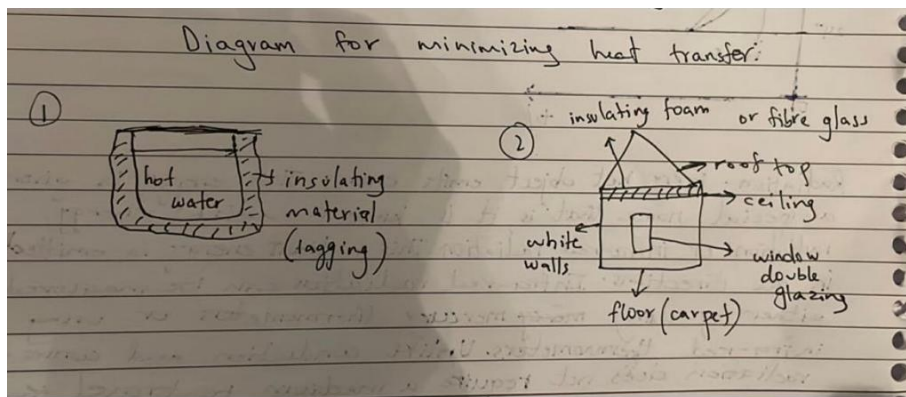 Diagram for minimizing heat transfer:
①
hot
water
insulating
material
(lagging)
②
insulating foam or fibre glass
roof top
ceiling
white
walls
window
double
glazing
floor (carpet)